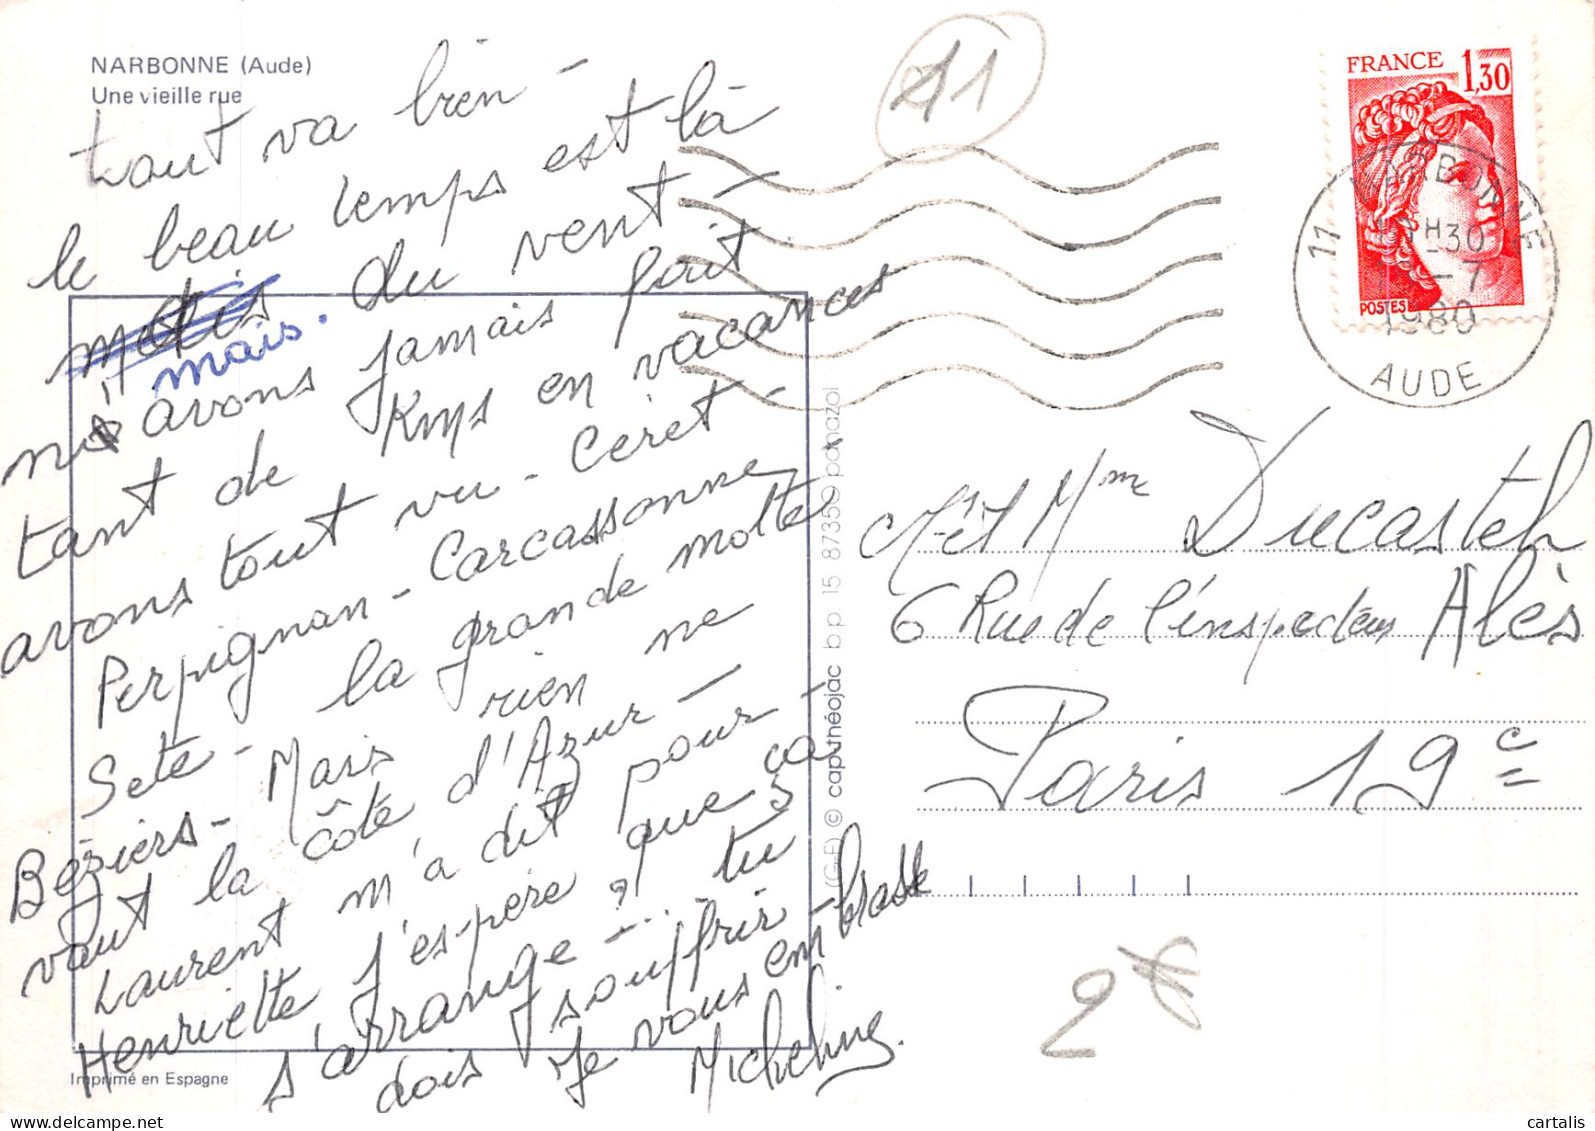 NARBONNE (Aude)
Une vieille rue
tout va bien -
le beau temps est là
mais du vent -
mais.
avons jamais fait
tant de Kms en vacances
avons tout vu - Ceret -
Perpignan - Carcassonne
Sete - la grande motte
Béziers - Mais rien ne
vaut la côte d'Azur -
Laurent m'a dit pour -
Henriette j'espère que ça
s'arrange - ... tu
dois souffrir -
Je vous embrasse
Micheline.
Imprimé en Espagne
(G-E) © cap-théojac bp 15 87350 panazol
11
FRANCE 1,30
POSTES
11 NARBONNE
H30
-7
1980
AUDE
M. et Mme Ducastel
6 Rue de l'inspecteur Alès
Paris 19e
2€
© cartalis
delcampe.net